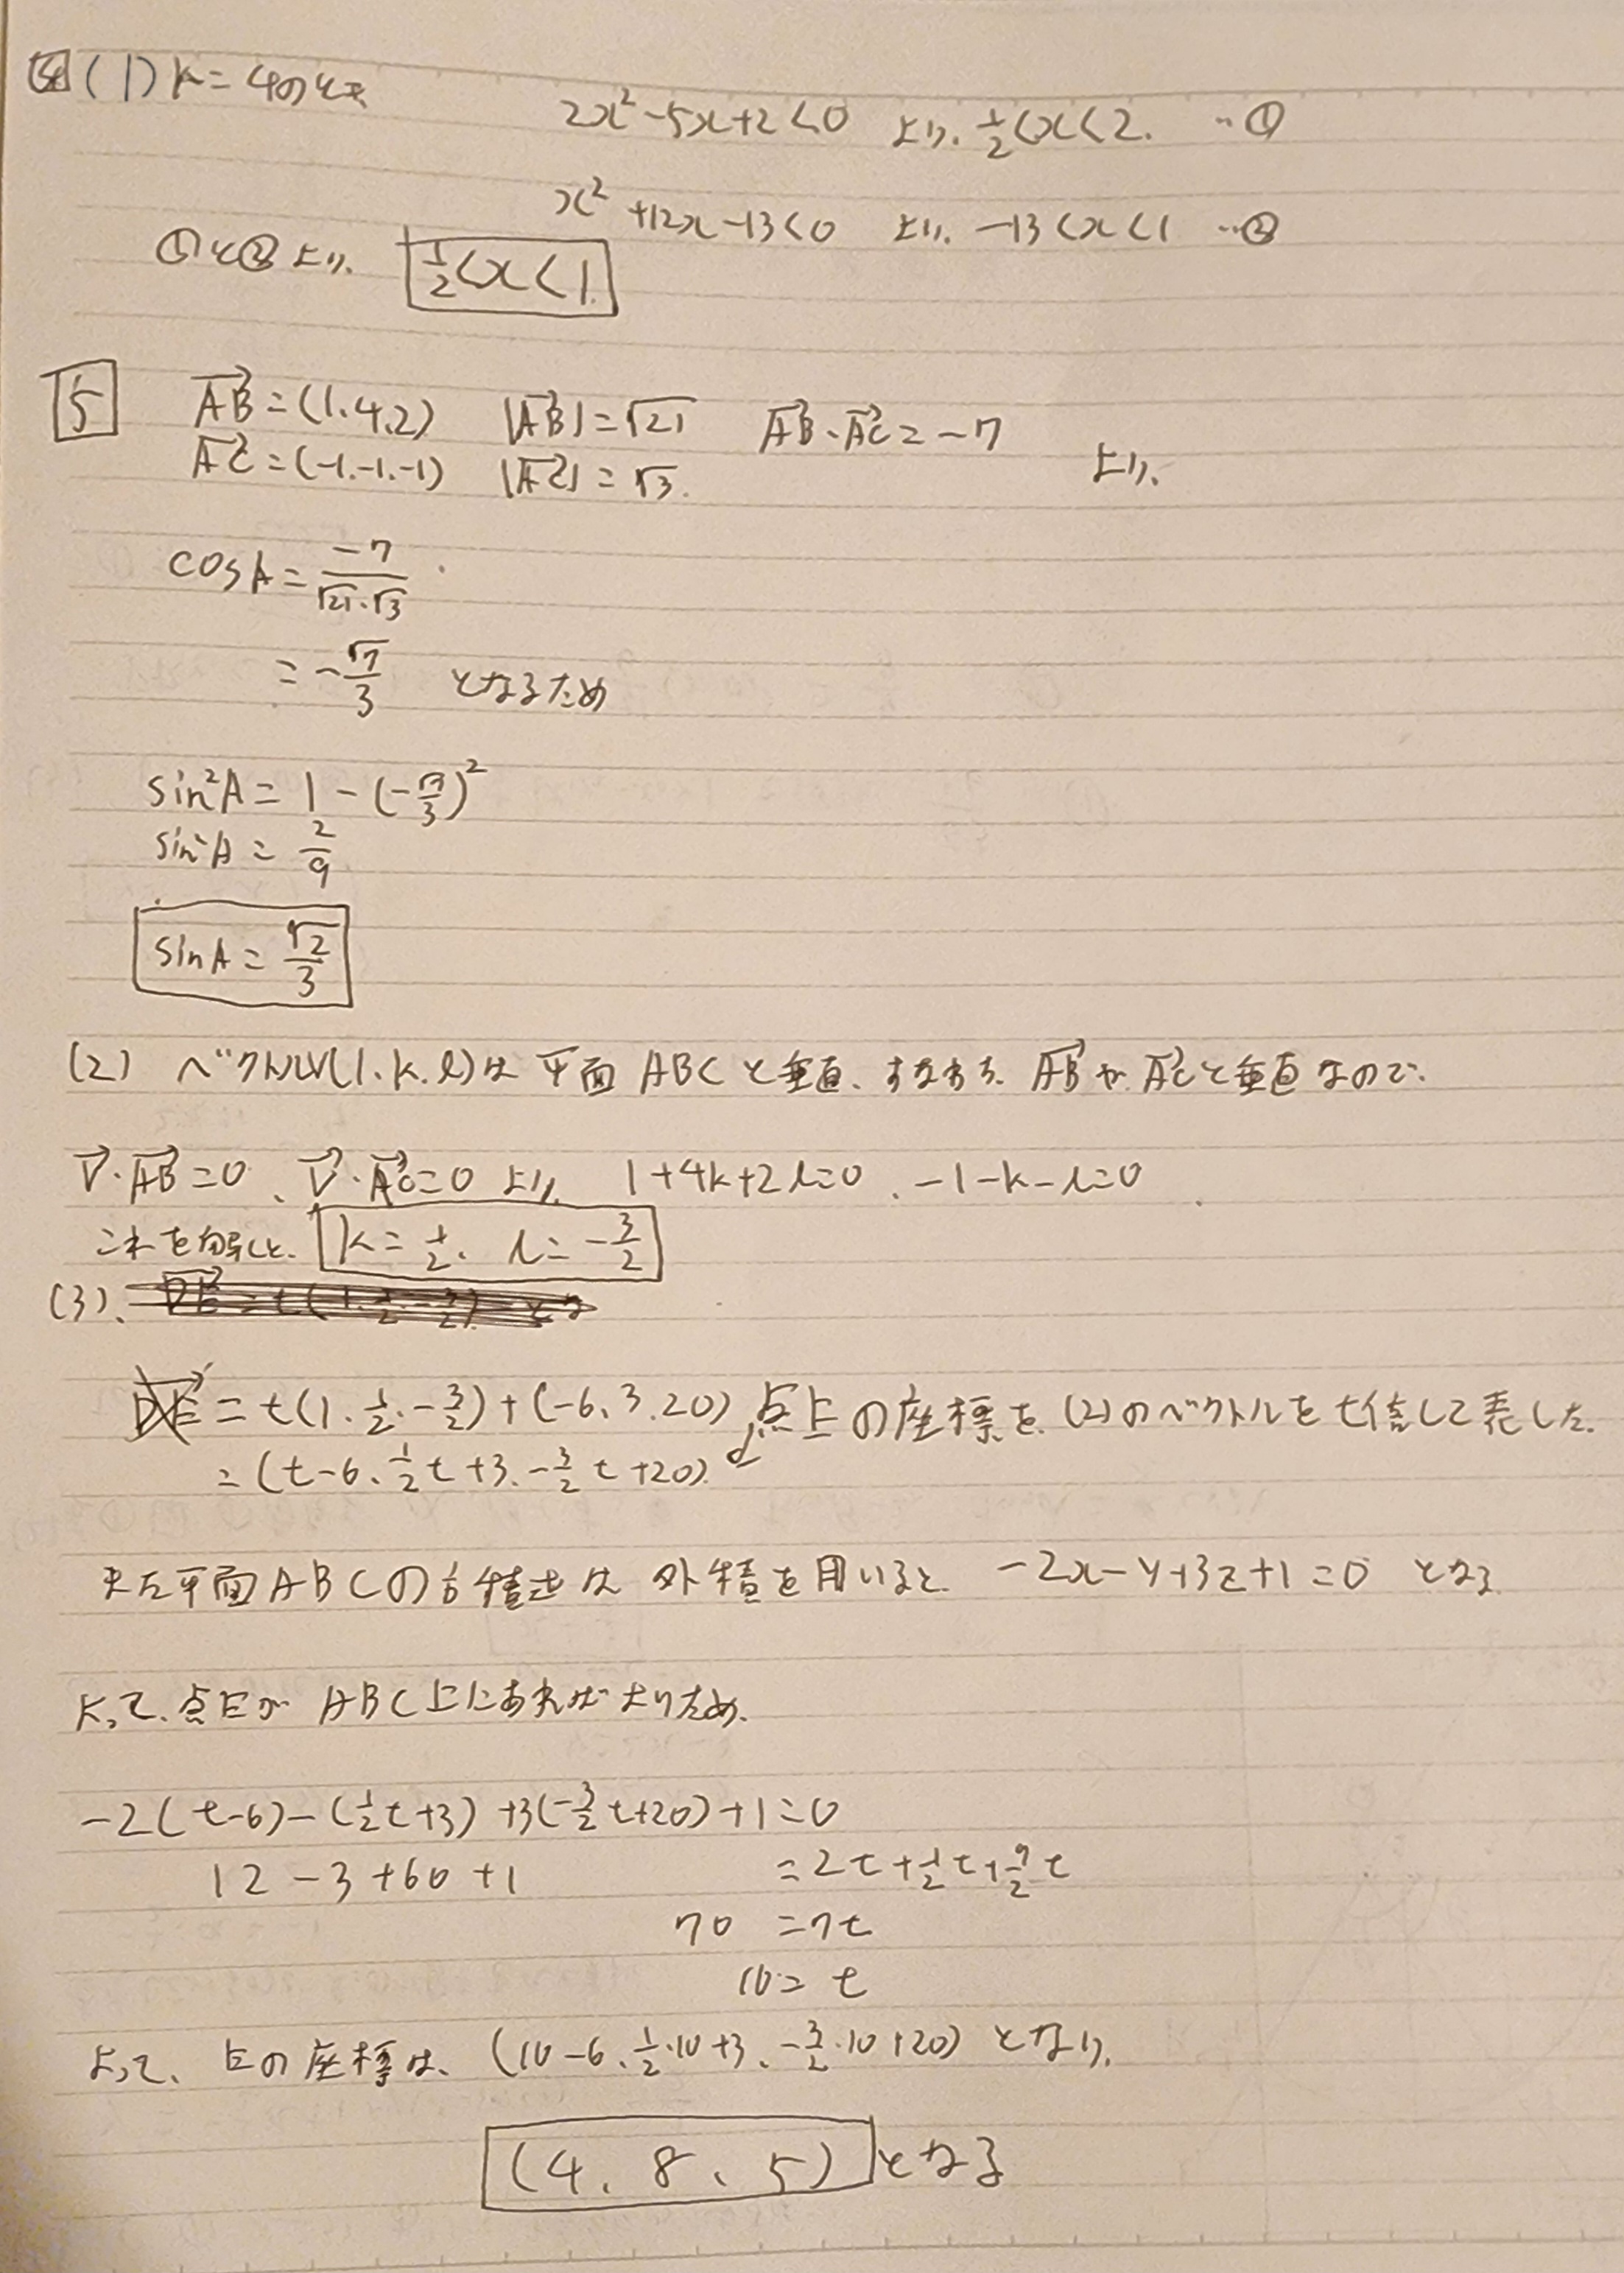 4 (1) k=4のとき
2x²-5x+2<0 より、1/2<x<2. …①
x²+12x-13<0 より、-13<x<1 …②
①と②より、 1/2<x<1.
5 AB→=(1.4.2) |AB→|=√21 AB→・AC→=-7
AC→=(-1.-1.-1) |AC→|=√3. より、
cosA=-7/(√21・√3)
=-√7/3 となるため
sin²A=1-(-√7/3)²
sin²A=2/9
sinA=√2/3
(2) ベクトルV(1.k.l)は平面ABCと垂直、すなわち、AB→やAC→と垂直なので、
V→・AB→=0、V→・AC→=0より、 1+4k+2l=0、-1-k-l=0
これを解くと、 k=1/2、l=-3/2
(3)、
=t(1.1/2.-3/2)+(-6、3.20) 点Eの座標を、(2)のベクトルをt倍して表した。
=(t-6、1/2t+3.-3/2t+20)
また平面ABCの方程式は 外積を用いると、 -2x-y+3z+1=0 となる
よって、点EがABC上にあればよいため、
-2(t-6)-(1/2t+3)+3(-3/2t+20)+1=0
12-3+60+1 =2t+1/2t+9/2t
70 =7t
10= t
よって、Eの座標は、(10-6、1/2・10+3、-3/2・10+20) となり、
(4、8、5)となる